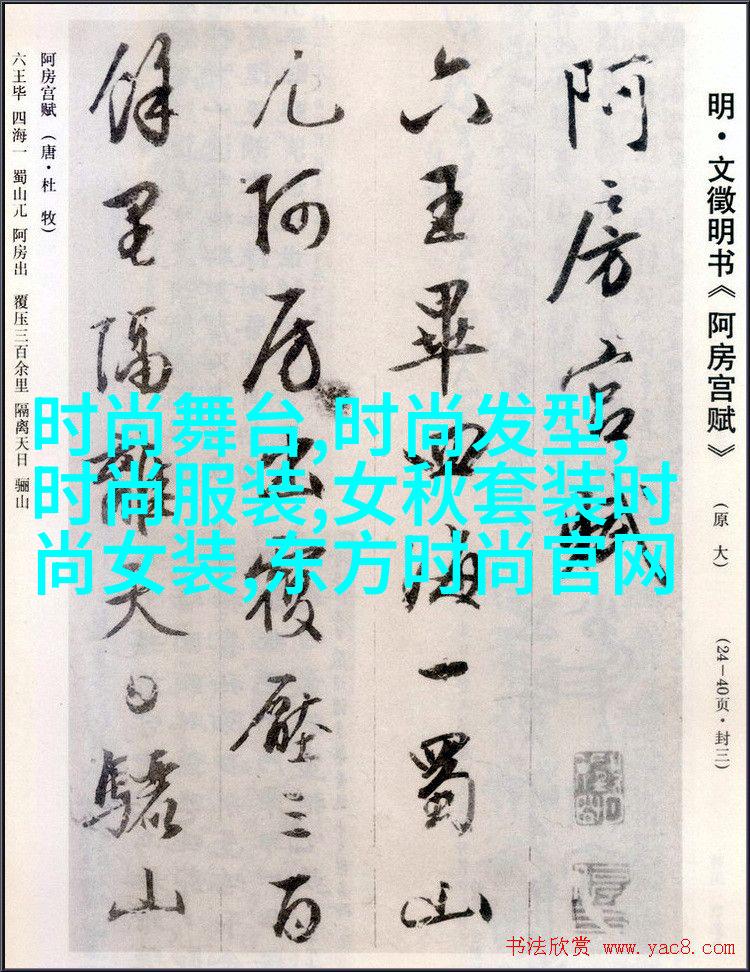 明·文徵明书《阿房宫赋》
(原大)
(24—40页·封三)
阿房宫赋
六王畢四海一蜀山
兀阿房出覆壓三百
餘里隔離天日驪山
阿房宫赋(唐·杜牧)
六王毕 四海一 蜀山兀 阿房出 覆压三百余里 隔离天日 骊山
时尚舞台,时尚发型,
时尚服装,女秋套装时
尚女装,东方时尚官网
书法欣赏 www.yac8.com